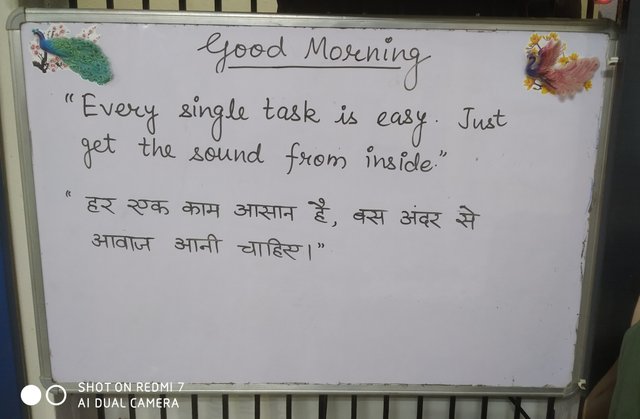 Good Morning
"Every single task is easy. Just
get the sound from inside."
"हर एक काम आसान है, बस अंदर से
आवाज आनी चाहिए।"
SHOT ON REDMI 7
AI DUAL CAMERA